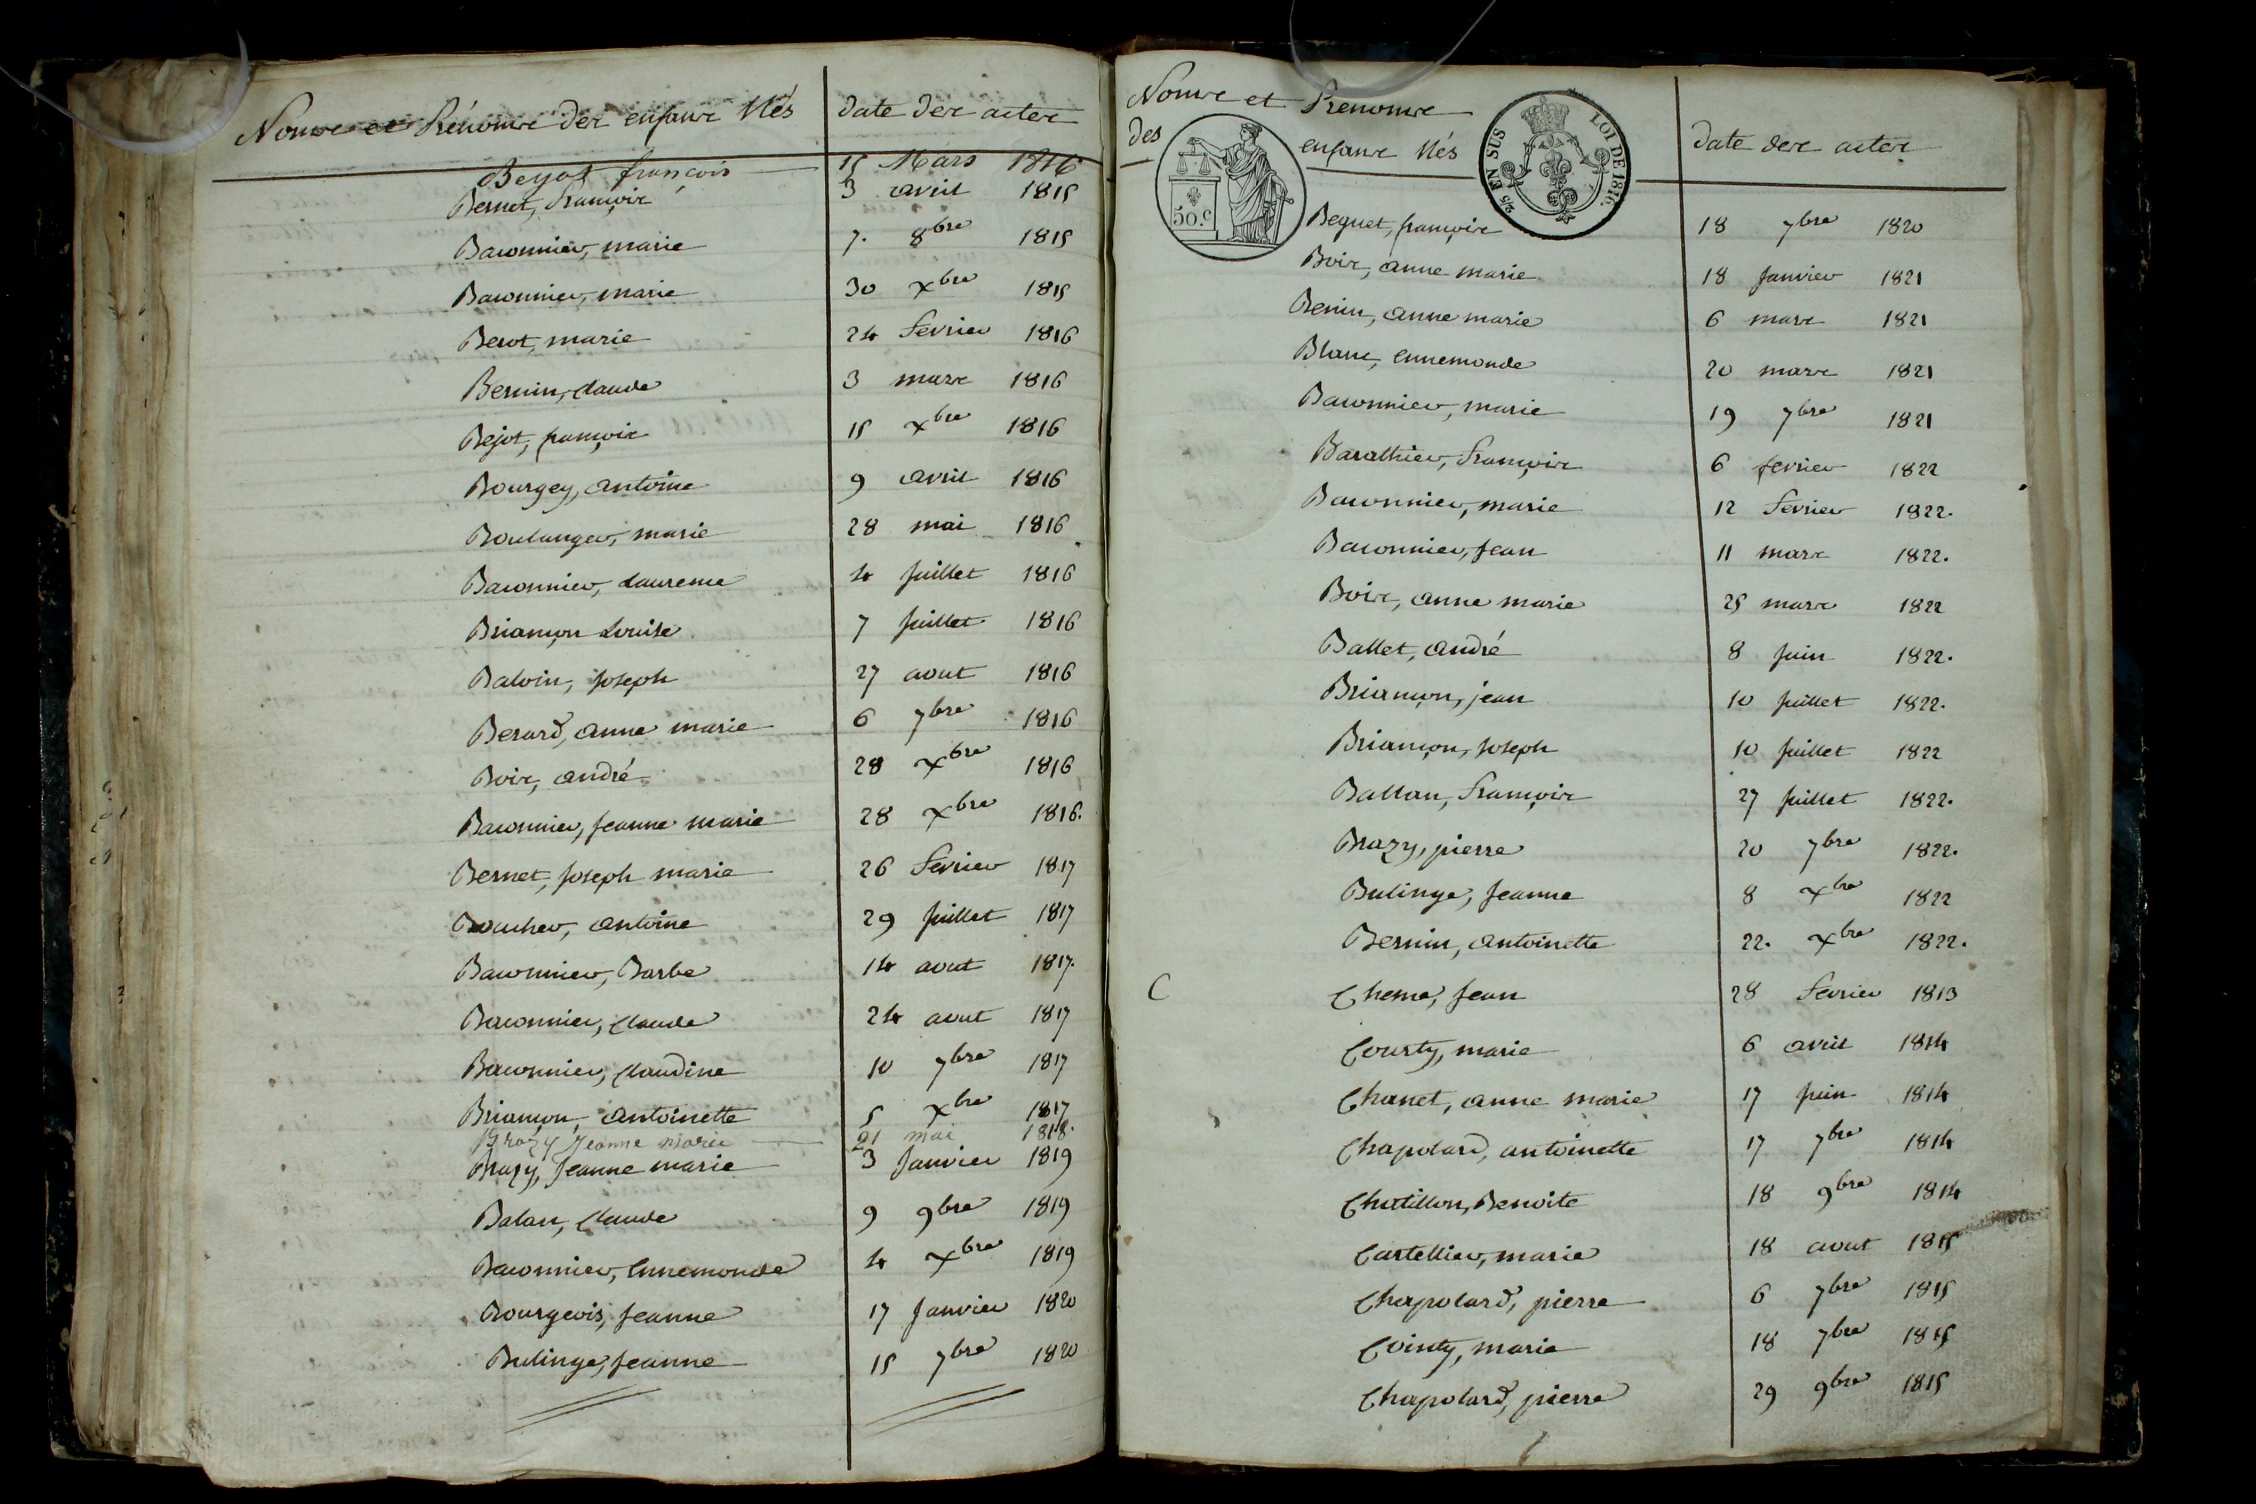 Noms et Prénoms des enfans Nés | date des actes
Beyot françois 15 Mars 1816
Bernet, françois 3 avril 1815
Baconnier, marie 7. 8bre 1815
Baconnier, marie 30 Xbre 1815
Berot, marie 24 fevrier 1816
Bernin, claude 3 mars 1816
Bejot, françois 15 Xbre 1816
Bourgey, antoine 9 avril 1816
Boulanger, marie 28 mai 1816
Baconnier, Laurence 4 Juillet 1816
Briançon Louise 7 Juillet 1816
Balvin, Joseph 27 aout 1816
Berard, anne marie 6 7bre 1816
Bois, andré 28 Xbre 1816
Baconnier, Jeanne marie 28 Xbre 1816.
Bernet, Joseph marie 26 fevrier 1817
Boucher, antoine 29 Juillet 1817
Baconnier, Barbe 14 aout 1817.
Baconnier, claude 24 aout 1817
Baconnier, claudine 10 7bre 1817
Briançon, antoinette 5 Xbre 1817
Brazy Jeanne Marie 21 mai 1818.
Brazy, Jeanne marie 3 Janvier 1819
Balan, claude 9 9bre 1819
Baconnier, Ennemonde 4 Xbre 1819
Bourgeois, Jeanne 17 Janvier 1820
Bulinge, Jeanne 15 7bre 1820
Noms et Prenoms
des enfans Nés | date des actes
50.c
2/5 EN SUS LOI DE 1816.
Beguet, françois 18 7bre 1820
Bois, anne marie 18 Janvier 1821
Benin, anne marie 6 mars 1821
Blanc, ennemonde 20 mars 1821
Baconnier, marie 19 7bre 1821
Barathier, François 6 fevrier 1822
Baconnier, marie 12 fevrier 1822.
Baconnier, Jean 11 mars 1822.
Bois, anne marie 25 mars 1822
Ballet, andré 8 Juin 1822.
Briançon, jean 10 Juillet 1822.
Briançon, Joseph 10 Juillet 1822
Ballan, François 27 Juillet 1822.
Brazy, pierre 20 7bre 1822.
Bulinge, Jeanne 8 Xbre 1822
Bernin, antoinette 22. Xbre 1822.
C Chema, Jean 28 fevrier 1813
Courty, marie 6 avril 1814
Chanet, anne marie 17 Juin 1814
Chapolard, antoinette 17 7bre 1814
Chatillon, Benoite 18 9bre 1814
Cartellier, marie 18 aout 1815
Chapolard, pierre 6 7bre 1815
Cointy, marie 18 7bre 1815
Chapolard, pierre 29 9bre 1815